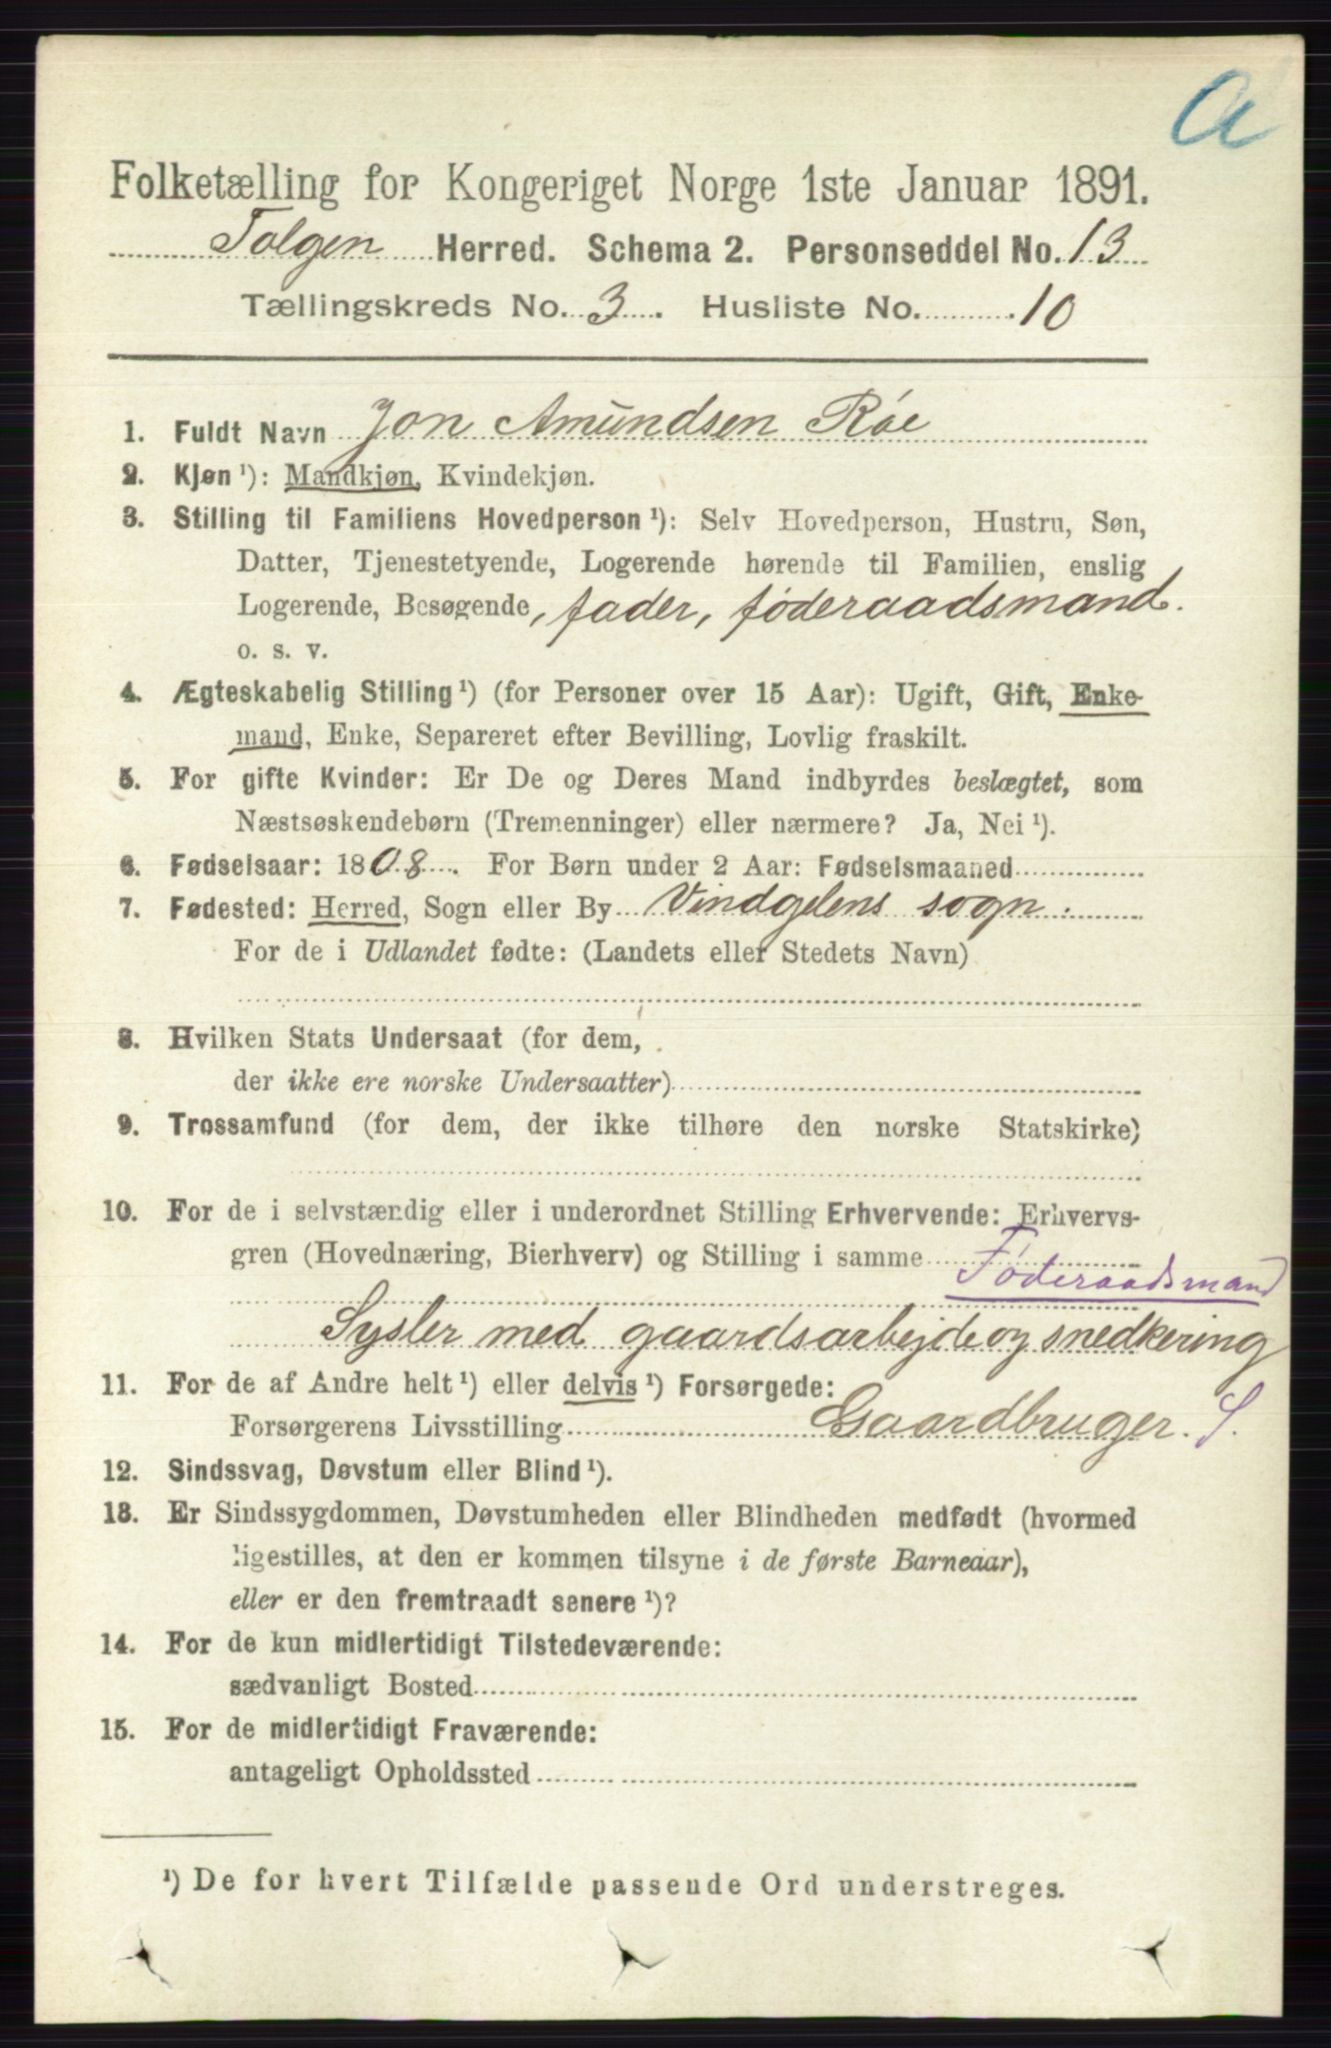 a
Folketælling for Kongeriget Norge 1ste Januar 1891.
Tolgen Herred. Schema 2. Personseddel No. 13
Tællingskreds No. 3. Husliste No. 10
1. Fuldt Navn Jon Amundsen Róe
2. Kjøn ¹): Mandkjøn, Kvindekjøn.
3. Stilling til Familiens Hovedperson ¹): Selv Hovedperson, Hustru, Søn,
Datter, Tjenestetyende, Logerende hørende til Familien, enslig
Logerende, Besøgende, fader, føderaadsmand.
o. s. v.
4. Ægteskabelig Stilling ¹) (for Personer over 15 Aar): Ugift, Gift, Enke-
mand, Enke, Separeret efter Bevilling, Lovlig fraskilt.
5. For gifte Kvinder: Er De og Deres Mand indbyrdes beslægtet, som
Næstsøskendebørn (Tremenninger) eller nærmere? Ja, Nei ¹).
6. Fødselsaar: 1808. For Børn under 2 Aar: Fødselsmaaned
7. Fødested: Herred, Sogn eller By Vindgelens sogn.
For de i Udlandet fødte: (Landets eller Stedets Navn)
8. Hvilken Stats Undersaat (for dem,
der ikke ere norske Undersaatter)
9. Trossamfund (for dem, der ikke tilhøre den norske Statskirke)
10. For de i selvstændig eller i underordnet Stilling Erhvervende: Erhvervs-
gren (Hovednæring, Bierhverv) og Stilling i samme Føderaadsmand
Sysler med gaardsarbejde og snedkering
11. For de af Andre helt ¹) eller delvis ¹) Forsørgede:
Forsørgerens Livsstilling Gaardbruger. S.
12. Sindssvag, Døvstum eller Blind ¹).
13. Er Sindssygdommen, Døvstumheden eller Blindheden medfødt (hvormed
ligestilles, at den er kommen tilsyne i de første Barneaar),
eller er den fremtraadt senere ¹)?
14. For de kun midlertidigt Tilstedeværende:
sædvanligt Bosted
15. For de midlertidigt Fraværende:
antageligt Opholdssted
¹) De for hvert Tilfælde passende Ord understreges.